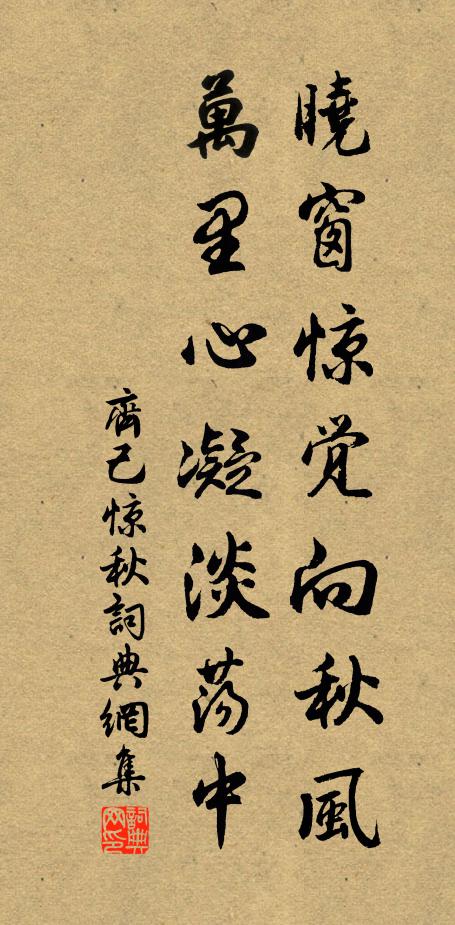 曉窗惊觉向秋風
萬里心凝淡荡中
齊己惊秋詞典網集
詞典網印